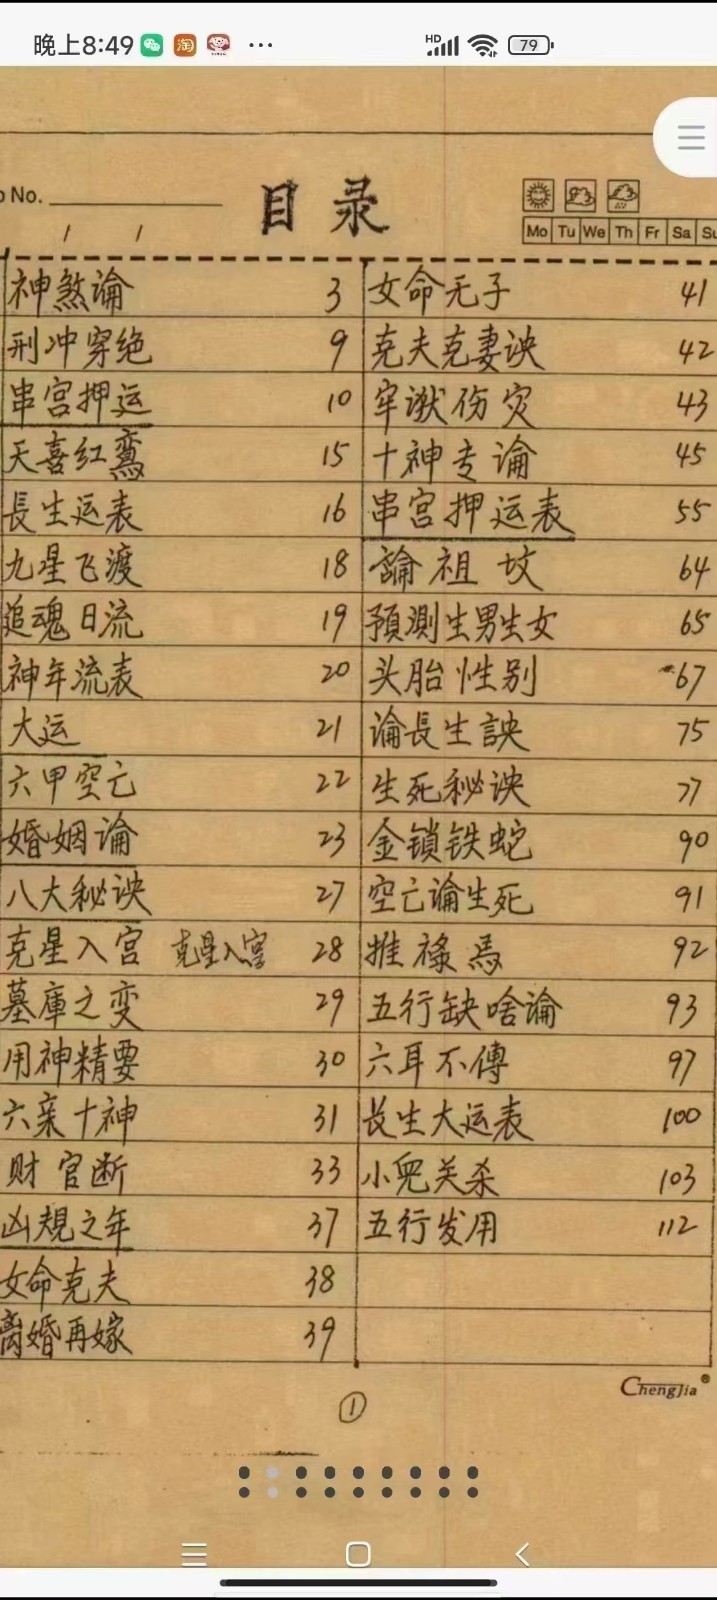 晚上8:49
HD
79
No.
目录
Mo Tu We Th Fr Sa Su
神煞論 3
刑冲穿绝 9
串宫押运 10
天喜红鸾 15
長生运表 16
九星飞渡 18
追魂日流 19
神年流表 20
大运 21
六甲空亡 22
婚姻论 23
八大秘诀 27
克星入宫 克星入宫 28
墓庫之变 29
用神精要 30
六亲十神 31
财官断 33
凶規之年 37
女命克夫 38
离婚再嫁 39
女命无子 41
克夫克妻诀 42
牢狱伤灾 43
十神专論 45
串宫押运表 55
論祖坟 64
預測生男生女 65
头胎性别 67
論長生訣 75
生死秘诀 77
金锁铁蛇 90
空亡论生死 91
推祿馬 92
五行缺啥论 93
六耳不傳 97
长生大运表 100
小兒关杀 103
五行发用 112
ChengJia®
①